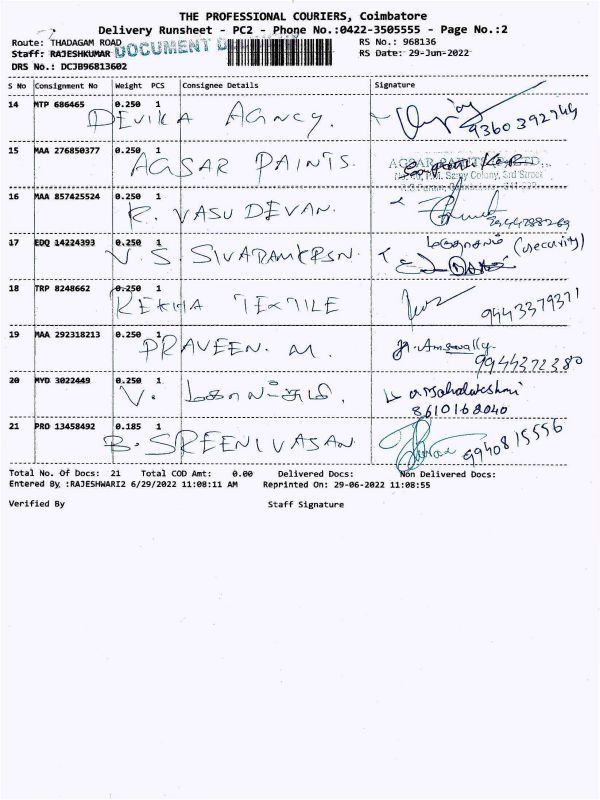 THE PROFESSIONAL COURIERS, Coimbatore
Delivery Runsheet - PC2 - Phone No.:0422-3505555 - Page No.:2
Route: THADAGAM ROAD
RS No.: 968136
Staff: RAJESHKUMAR DOCUMENT
RS Date: 29-Jun-2022
DRS No.: DCJB96813602
S No Consignment No Weight PCS Consignee Details Signature
14 MTP 686465 0.250 1
DEVIKA AGNCY. 9360392744
15 MAA 276850377 0.250 1
AGSAR PAINTS. AGSAR PAINTS
Colony, 3rd Street
16 MAA 857425524 0.250 1
K. VASU DEVAN.
17 EDQ 14224393 0.250 1
V. S. SIVARAMKRSN. (security)
18 TRP 8248662 0.250 1
REKHA TEXTILE 9443379371
19 MAA 292318213 0.250 1
PRAVEEN. M. 9944372380
20 MYD 3022449 0.250 1
V. மகாலட்சுமி.
8610168040
21 PRO 13458492 0.185 1
B. SREENIVASAN 9940815556
Total No. Of Docs: 21 Total COD Amt: 0.00 Delivered Docs: Non Delivered Docs:
Entered By :RAJESHWARI2 6/29/2022 11:08:11 AM Reprinted On: 29-06-2022 11:08:55
Verified By Staff Signature